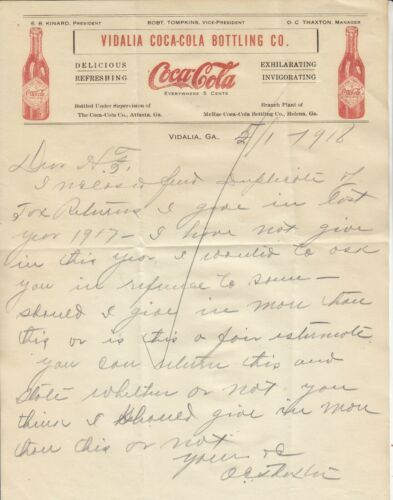 E. R. KINARD, PRESIDENT
ROBT. TOMPKINS, VICE-PRESIDENT
O. C. THAXTON, MANAGER
VIDALIA COCA-COLA BOTTLING CO.
DELICIOUS
REFRESHING
Coca-Cola
EVERYWHERE 5 CENTS
EXHILARATING
INVIGORATING
Bottled Under Supervision of
The Coca-Cola Co., Atlanta, Ga.
Branch Plant of
McRae Coca-Cola Bottling Co., Helena, Ga.
VIDALIA, GA. 5/1 1918
Dear H.F.
I inclosed find Duplicate of
Tax Returns I gave in last
year 1917 – I have not give
in this year I wanted to ask
you in refrence to same –
should I give in more than
this or is this a fair estimate
you can return this and
state whether or not you
think I should give in more
than this or not
yours &c
O.C. Thaxton